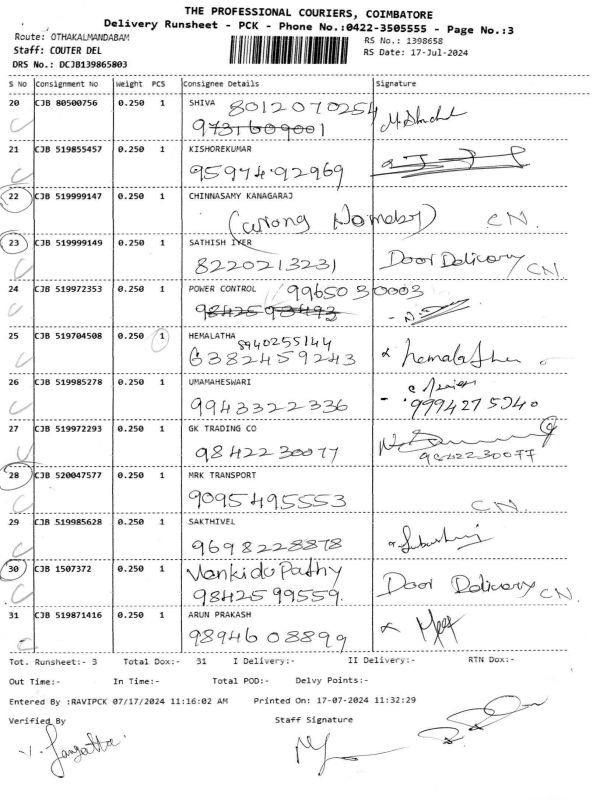 THE PROFESSIONAL COURIERS, COIMBATORE
Delivery Runsheet - PCK - Phone No.:0422-3505555 - Page No.:3
Route: OTHAKALMANDABAM RS No.: 1398658
Staff: COUTER DEL RS Date: 17-Jul-2024
DRS No.: DCJB139865803
S No Consignment No Weight PCS Consignee Details Signature
20 CJB 80500756 0.250 1 SHIVA 8012070254
9731609001
21 CJB 519855457 0.250 1 KISHOREKUMAR
9597492969
22 CJB 519999147 0.250 1 CHINNASAMY KANAGARAJ
(wrong Number) CN.
23 CJB 519999149 0.250 1 SATHISH IYER
8220213231 Door Delivery CN.
24 CJB 519972353 0.250 1 POWER CONTROL 9965030003
25 CJB 519704508 0.250 1 HEMALATHA 8940255144
6382459243 Hemalatha
26 CJB 519985278 0.250 1 UMAMAHESWARI
9943322336 9994275240
27 CJB 519972293 0.250 1 GK TRADING CO
9842230077 9842230077
28 CJB 520047577 0.250 1 MRK TRANSPORT
9095495553 CN.
29 CJB 519985628 0.250 1 SAKTHIVEL
9698228878
30 CJB 1507372 0.250 1 Vankidu Pathy
9842599559. Door Delivery CN.
31 CJB 519871416 0.250 1 ARUN PRAKASH
9894608899
Tot. Runsheet:- 3 Total Dox:- 31 I Delivery:- II Delivery:- RTN Dox:-
Out Time:- In Time:- Total POD:- Delvy Points:-
Entered By :RAVIPCK 07/17/2024 11:16:02 AM Printed On: 17-07-2024 11:32:29
Verified By Staff Signature